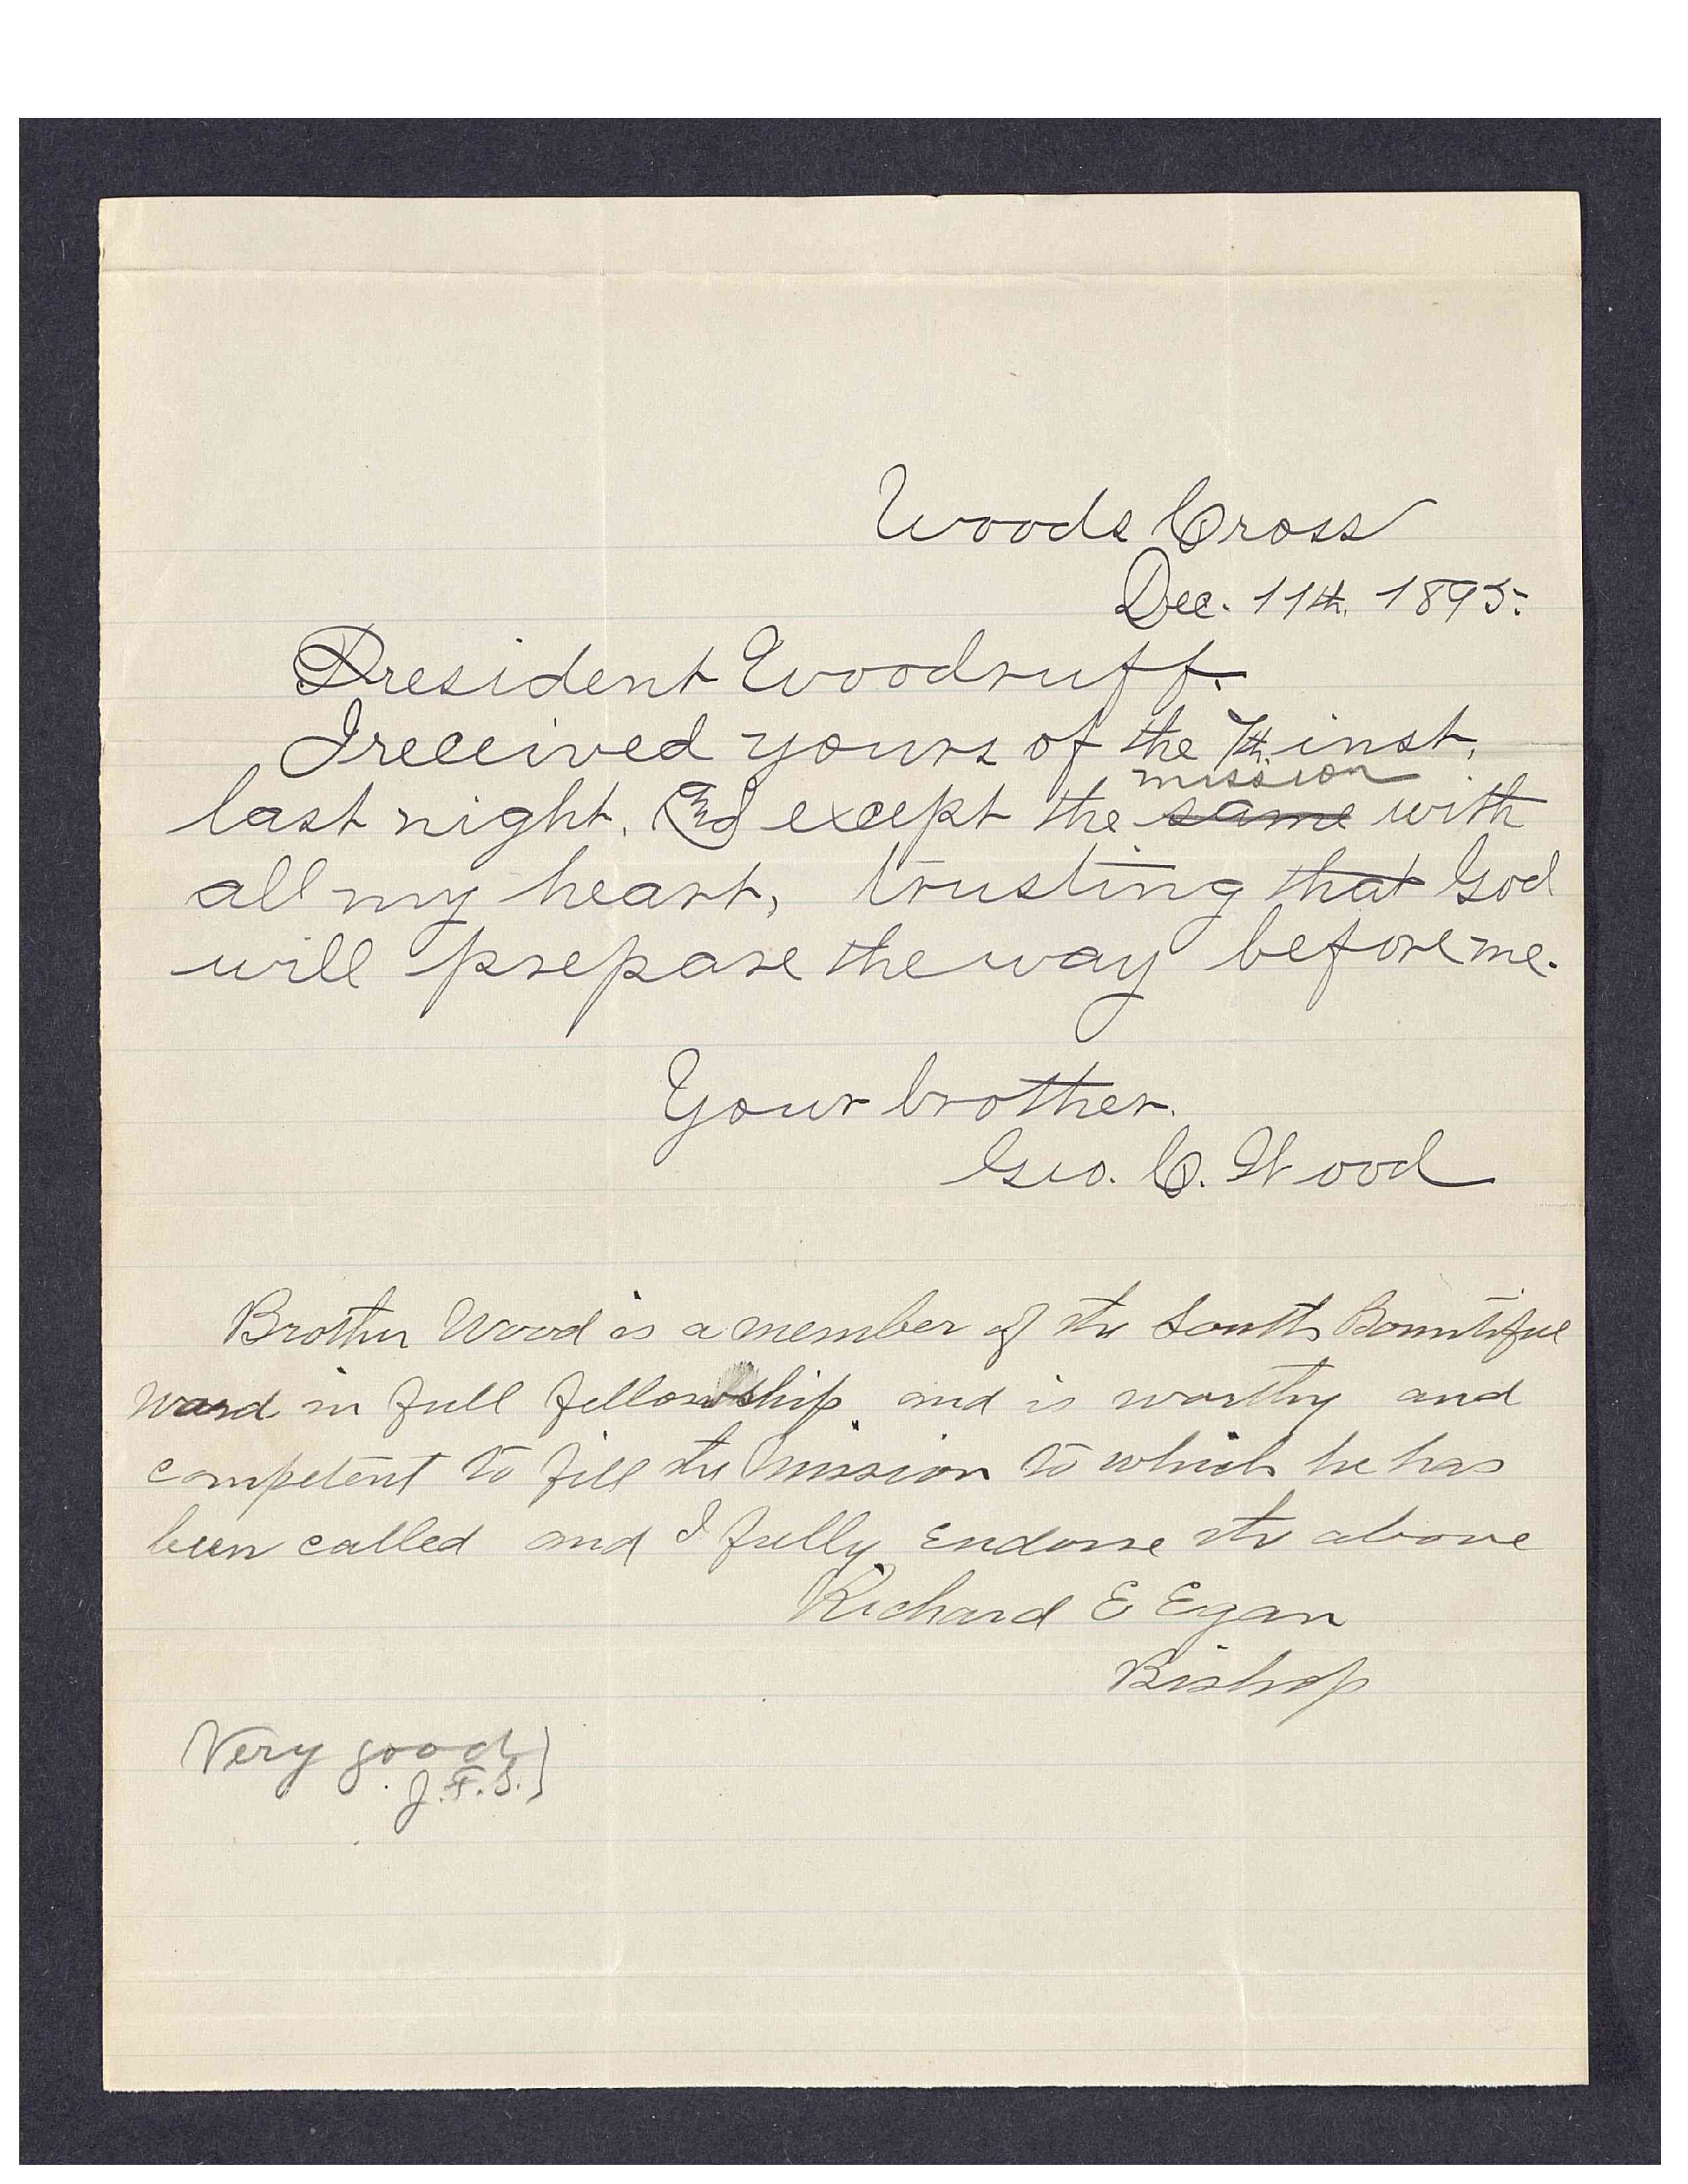 Woods Cross
Dec. 11th. 1895.
President Woodruff.
I received yours of the 7th. inst,
mission
last night. And except the same with
all my heart, trusting that God
will prepare the way before me.
Your brother.
Geo. C. Wood
Brother Wood is a member of the South Bountiful
Ward in full fellowship and is worthy and
competent to fill the Mission to which he has
been called and I fully Endorse the above
Richard E Egan
Bishop
Very good
J.F.S.